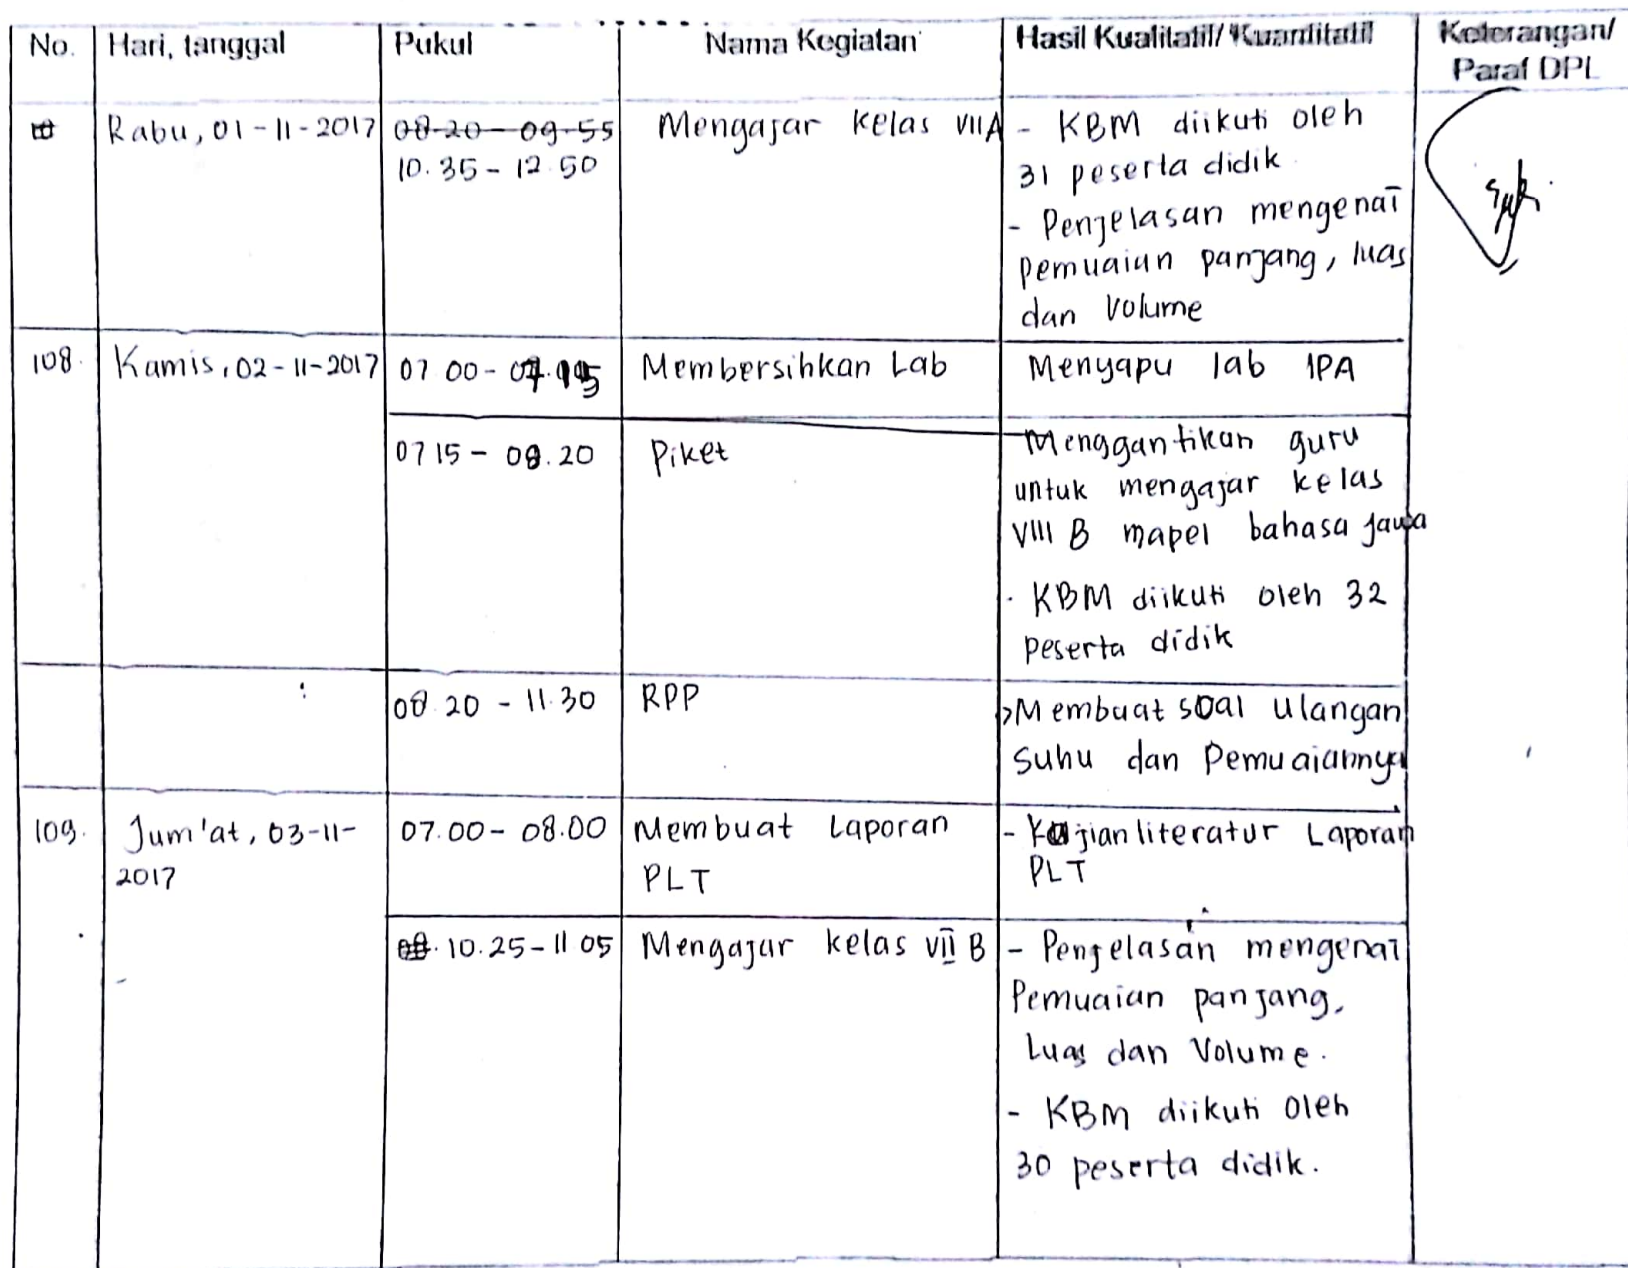 No. Hari, tanggal Pukul Nama Kegiatan Hasil Kualitatif/ Kuantitatif Keterangan/
Paraf DPL
Rabu, 01-11-2017 08.20 - 09.55 Mengajar kelas VIIA - KBM diikuti oleh
10.35 - 12.50 31 peserta didik
- Penjelasan mengenai
pemuaian panjang, luas
dan Volume
108. Kamis, 02-11-2017 07.00 - 07.15 Membersihkan Lab Menyapu lab IPA
07 15 - 08.20 Piket Menggantikan guru
untuk mengajar kelas
VIII B mapel bahasa jawa
- KBM diikuti oleh 32
peserta didik
08.20 - 11.30 RPP Membuat soal ulangan
Suhu dan Pemuaiannya
109. Jum'at, 03-11- 07.00 - 08.00 Membuat Laporan - Kajian literatur Laporan
2017 PLT PLT
10.25 - 11 05 Mengajar kelas VII B - Penjelasan mengenai
Pemuaian panjang,
Luas dan Volume.
- KBM diikuti oleh
30 peserta didik.